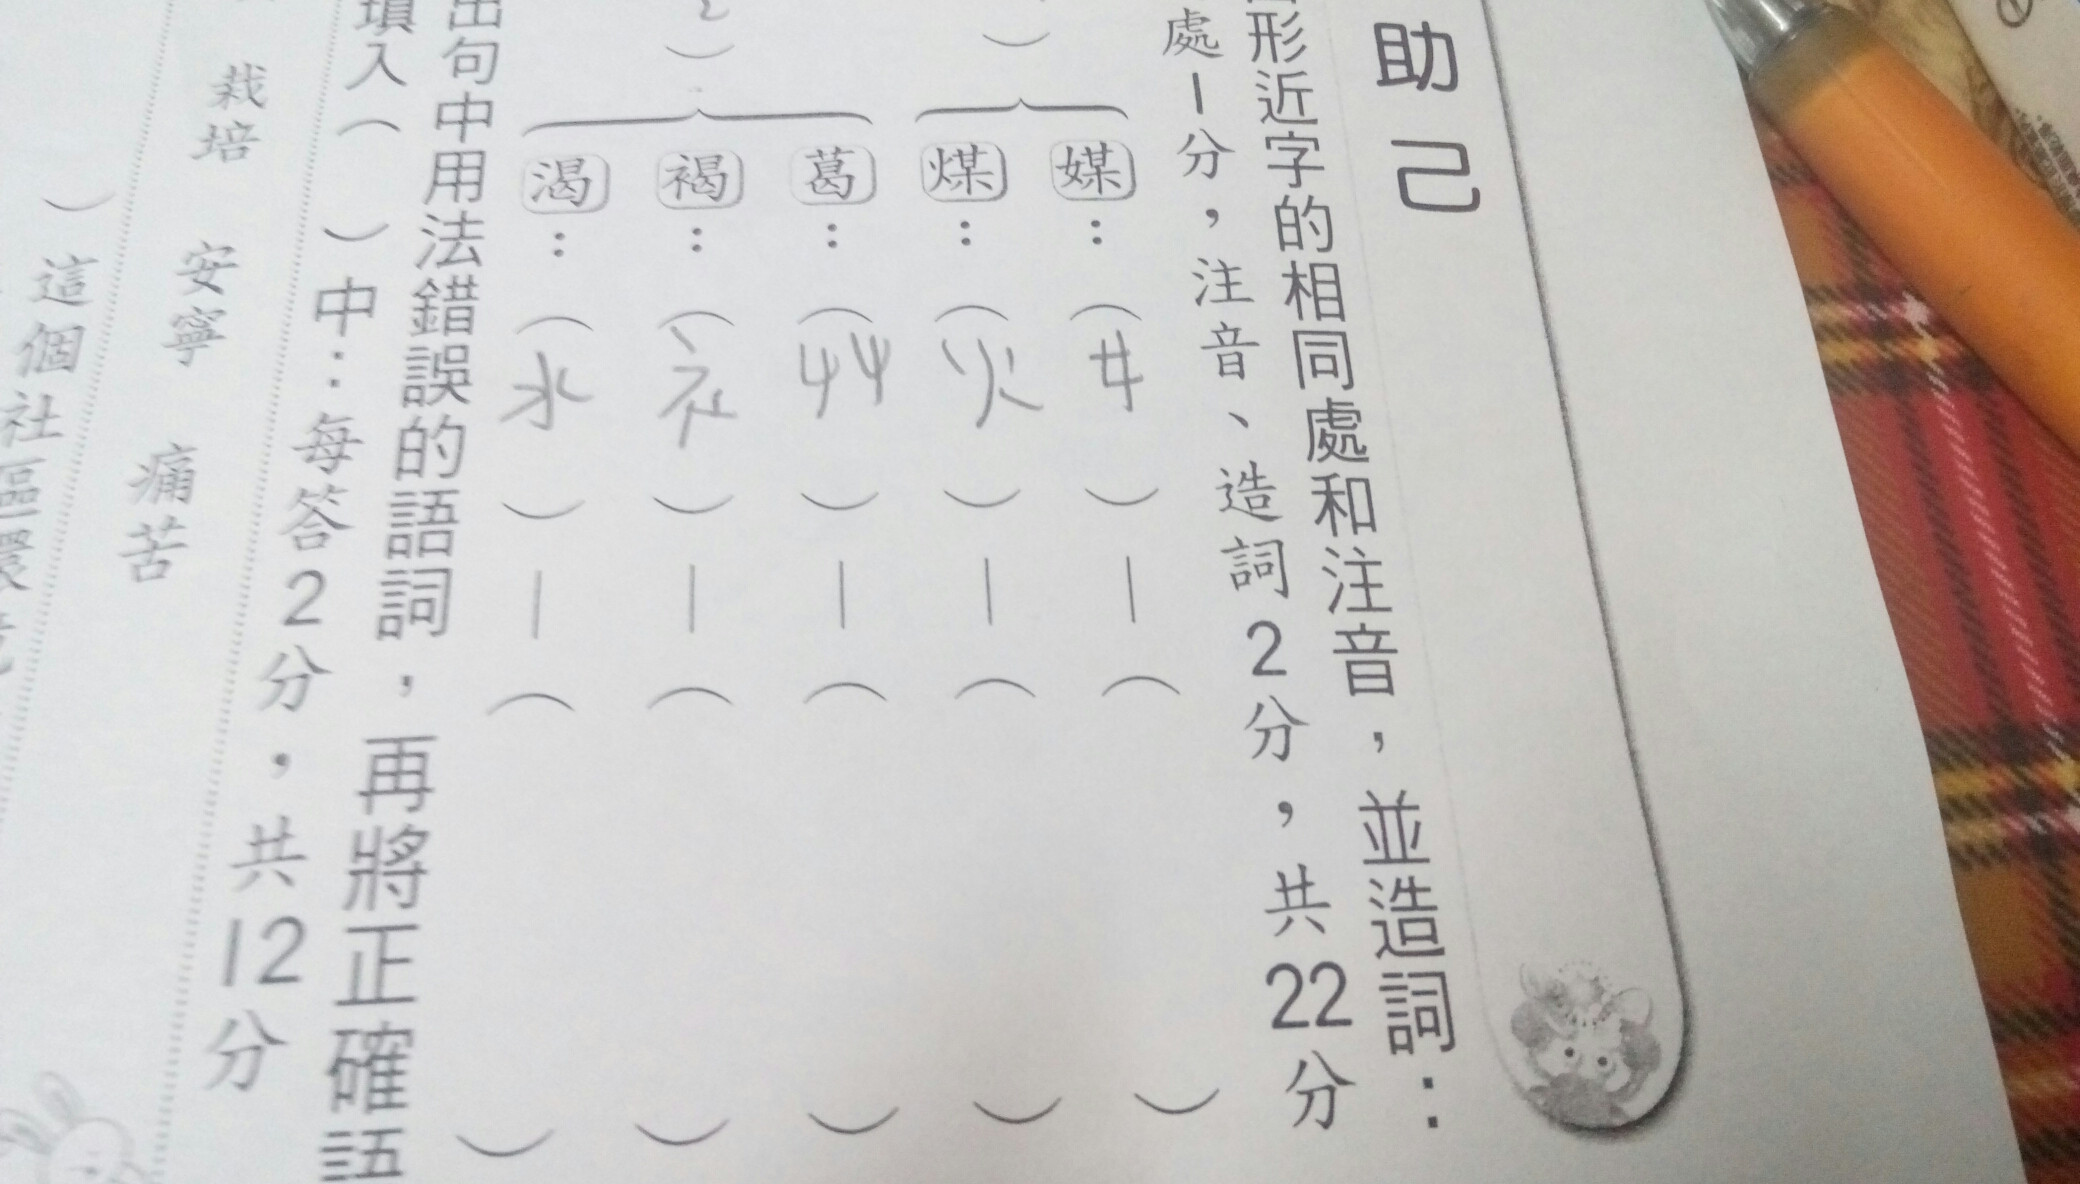 助己
形近字的相同處和注音，並造詞：
處1分，注音、造詞2分，共22分
媒：（ 女 ）—（ ）
煤：（ 火 ）—（ ）
葛：（ 艸 ）—（ ）
褐：（ 衣 ）—（ ）
渴：（ 水 ）—（ ）
出句中用法錯誤的語詞，再將正確語
填入（ ）中：每答2分，共12分
栽培 安寧 痛苦
）這個社區環